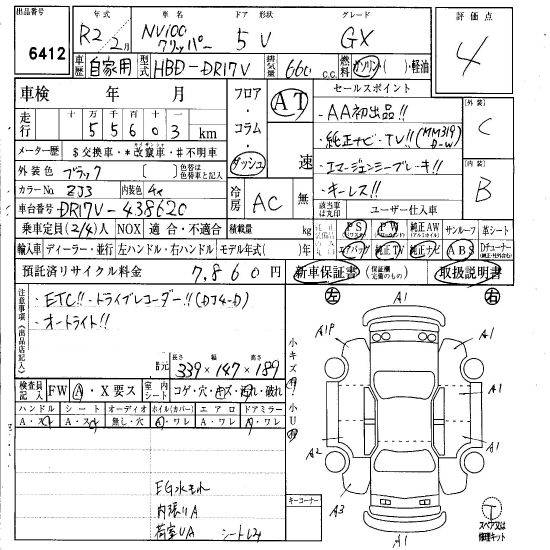 出品番号 6412
年式 R2 2月
車名 NV100 クリッパー
ドア 形状 5 V
グレード GX
評価点 4
車歴 自家用
型式 HBD-DR17V
排気量 660 c.c.
燃料 ガソリン ( )・軽油
車検 年 月
フロア・コラム・ダッシュ
AT 速
セールスポイント
・AA初出品!!
・純正ナビ・TV!! (MM319D-W)
・エマージェンシーブレーキ!!
・キーレス!!
外装 C
内装 B
走行 十 万 千 百 十 一
5 5 6 0 3 km
メーター歴 $交換車・*改竄車・#不明車
外装色 ブラック
[ ] 色替は色替車と記入
カラーNo. ZJ3
内装色
冷房 AC 無
該当事は丸印
ユーザー仕入車
車台番号 DR17V-438620
乗車定員 (2/4)人
NOX 適合・不適合
積載量 kg
PS PW 純正AW サンルーフ 革シート
輸入車 ディーラー・並行 左ハンドル・右ハンドル モデル年式( )年
エアバッグ 純正TV 純正ナビ ABS Dチューナー
預託済リサイクル料金 7,860円
新車保証書 (保証欄定義のもの) 取扱説明書
注意事項 (出品店記入)
・ETC!!・ドライブレコーダー!! (DJ4-D)
・オートライト!!
左 右
長さ 幅 高さ
339×147×189
小キズ 小U
検査員記入 FW A・X要ス
室内シート コゲ・穴・キズ・汚れ・破れ
ハンドル シート オーディオ ホイル(カバー) エアロ ドアミラー
A・スレ A・スレ 無し・穴 A・ワレ A・ワレ A・ワレ
EG水もれ
内張りA
荷室UA シートレス
キーコーナー
A1
A1P A1
A1
A2 A1
A3
A1
T
スペアタ又は修理キット